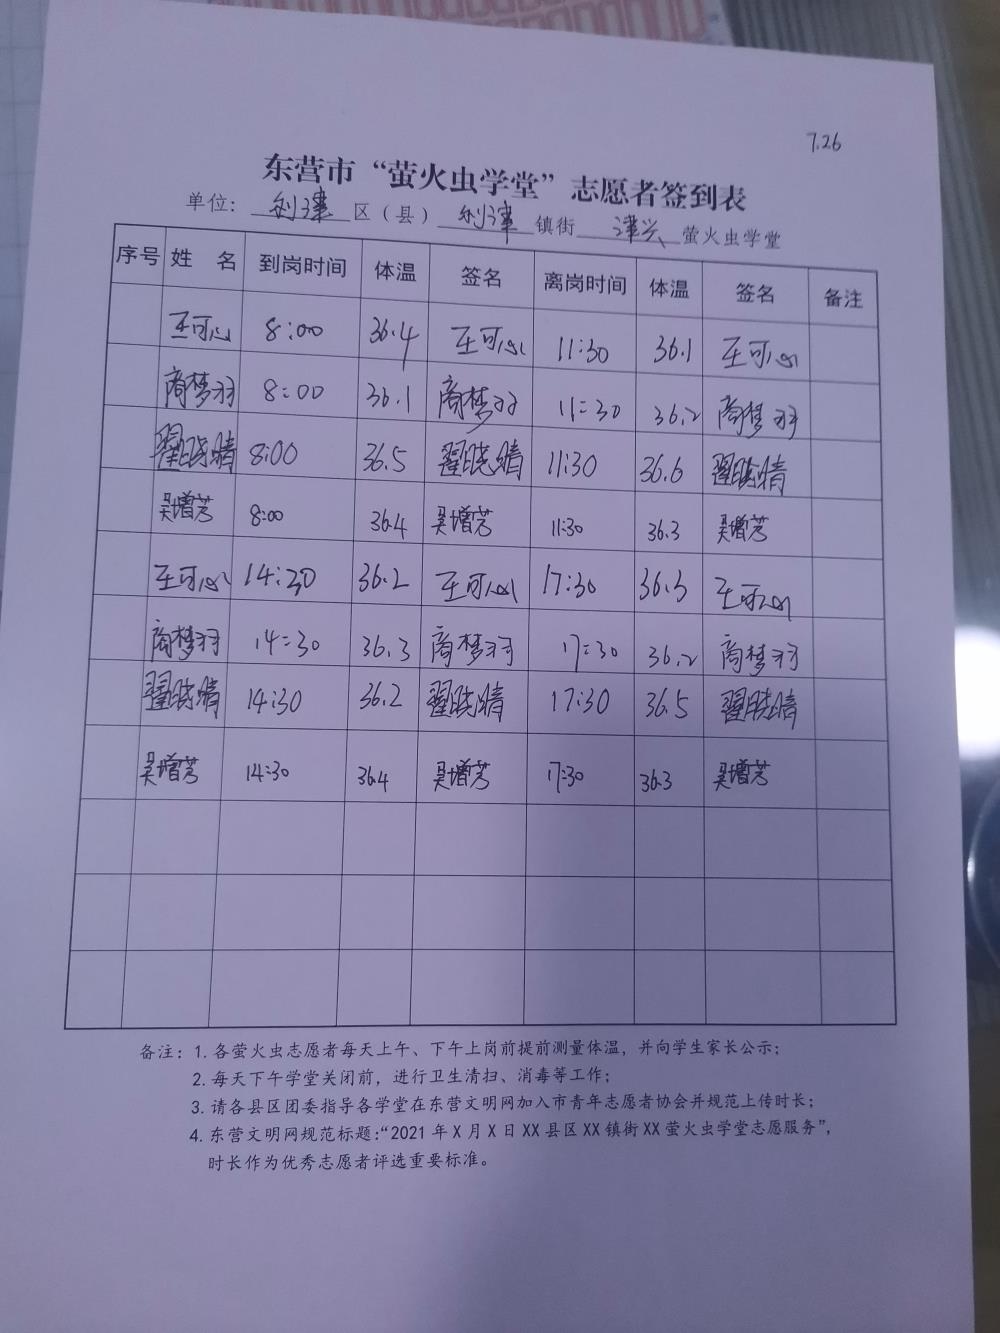 7.26
东营市“萤火虫学堂”志愿者签到表
单位: 利津 区(县) 利津 镇街 津兴 萤火虫学堂
序号 姓 名 到岗时间 体温 签名 离岗时间 体温 签名 备注
王可心 8:00 36.4 王可心 11:30 36.1 王可心
商梦羽 8:00 36.1 商梦羽 11:30 36.2 商梦羽
翟晓晴 8:00 36.5 翟晓晴 11:30 36.6 翟晓晴
吴增芳 8:00 36.4 吴增芳 11:30 36.3 吴增芳
王可心 14:30 36.2 王可心 17:30 36.3 王可心
商梦羽 14:30 36.3 商梦羽 17:30 36.2 商梦羽
翟晓晴 14:30 36.2 翟晓晴 17:30 36.5 翟晓晴
吴增芳 14:30 36.4 吴增芳 17:30 36.3 吴增芳
备注: 1. 各萤火虫志愿者每天上午、下午上岗前提前测量体温，并向学生家长公示；
2. 每天下午学堂关闭前，进行卫生清扫、消毒等工作；
3. 请各县区团委指导各学堂在东营文明网加入市青年志愿者协会并规范上传时长；
4. 东营文明网规范标题:“2021 年 X 月 X 日 XX 县区 XX 镇街 XX 萤火虫学堂志愿服务”，
时长作为优秀志愿者评选重要标准。